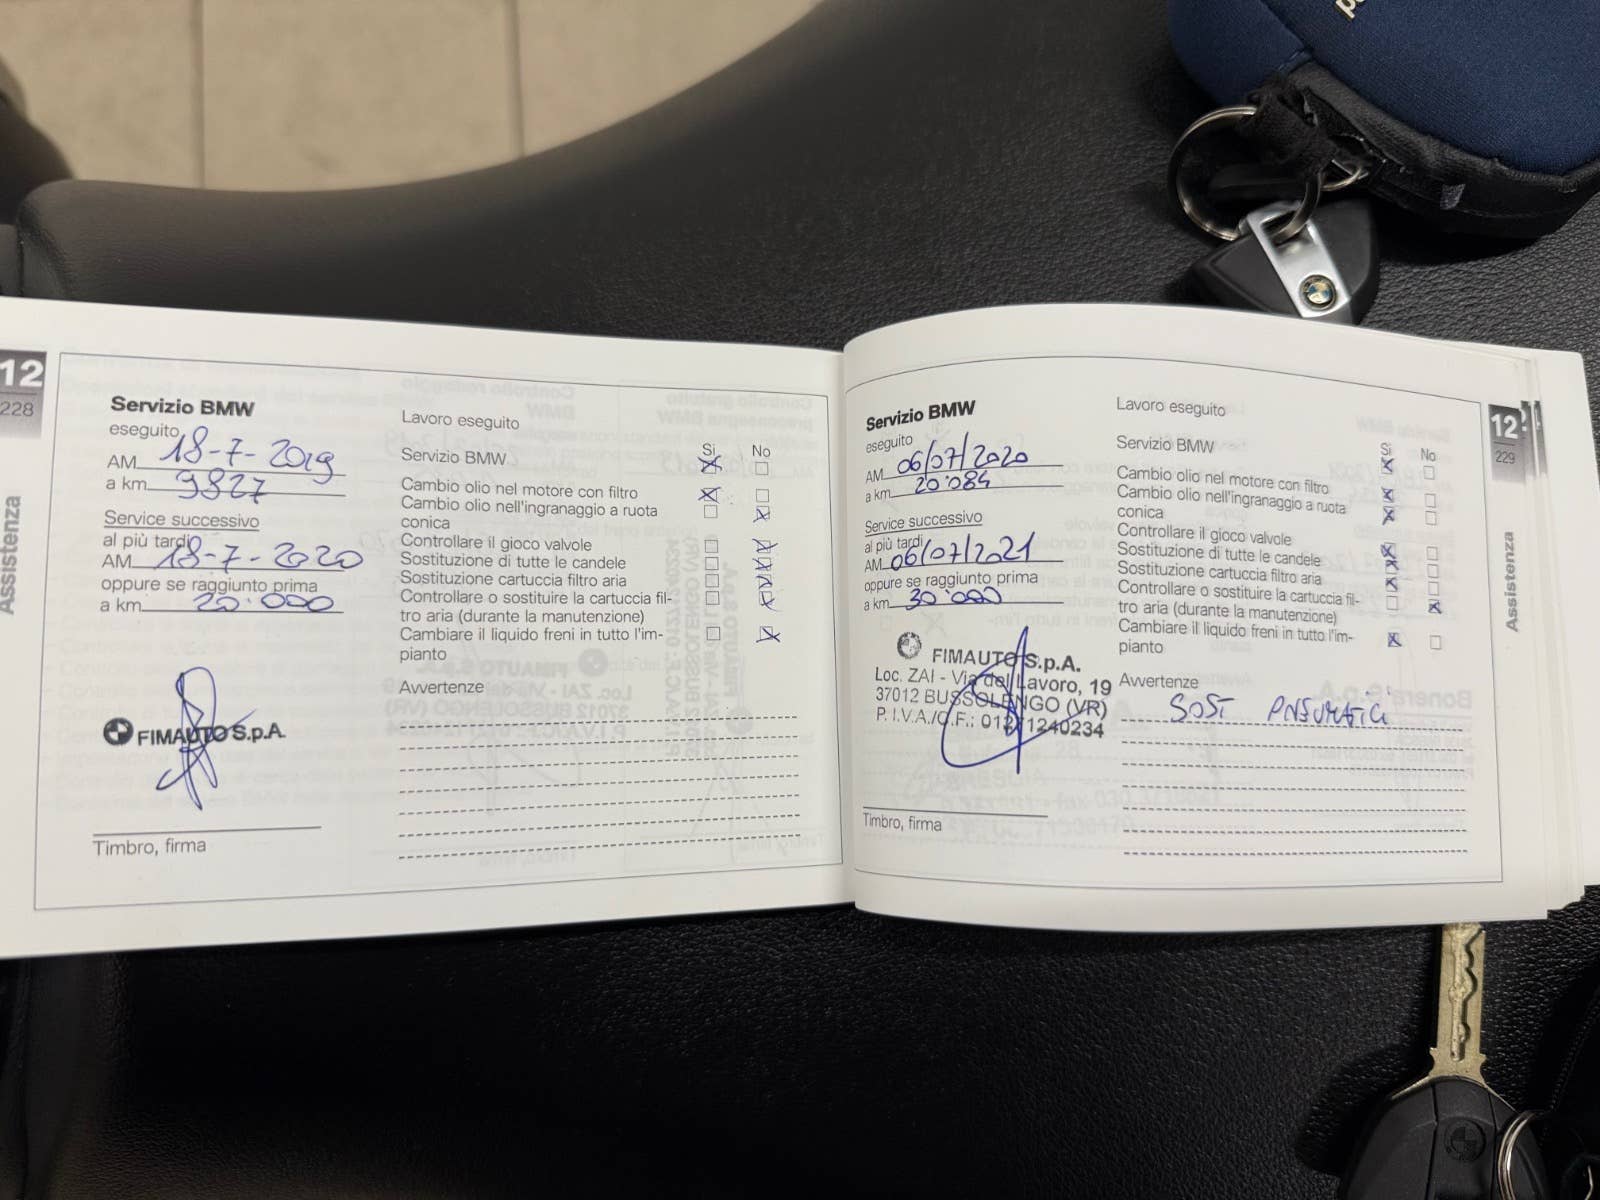 12
228
Assistenza
Servizio BMW
eseguito
AM 18-7-2019
a km 9827
Service successivo
al più tardi
AM 18-7-2020
oppure se raggiunto prima
a km 20.000
FIMAUTO S.p.A.
Timbro, firma
Lavoro eseguito
Si No
Servizio BMW
Cambio olio nel motore con filtro
Cambio olio nell'ingranaggio a ruota
conica
Controllare il gioco valvole
Sostituzione di tutte le candele
Sostituzione cartuccia filtro aria
Controllare o sostituire la cartuccia fil-
tro aria (durante la manutenzione)
Cambiare il liquido freni in tutto l'im-
pianto
Avvertenze
Servizio BMW
eseguito
AM 06/07/2020
a km 20.084
Service successivo
al più tardi
AM 06/07/2021
oppure se raggiunto prima
a km 30.000
FIMAUTO S.p.A.
Loc. ZAI - Via del Lavoro, 19
37012 BUSSOLENGO (VR)
P.I.V.A./C.F.: 01271240234
Timbro, firma
Lavoro eseguito
Si No
Servizio BMW
Cambio olio nel motore con filtro
Cambio olio nell'ingranaggio a ruota
conica
Controllare il gioco valvole
Sostituzione di tutte le candele
Sostituzione cartuccia filtro aria
Controllare o sostituire la cartuccia fil-
tro aria (durante la manutenzione)
Cambiare il liquido freni in tutto l'im-
pianto
Avvertenze
SOST PNEUMATICI
12
229
Assistenza